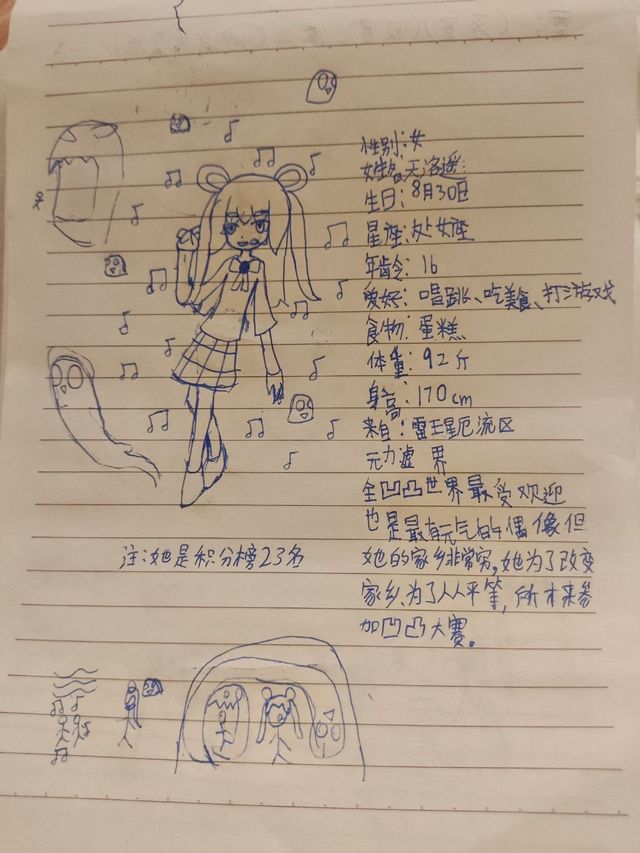 性别:女
姓名:天洛遥
生日:8月30日
星座:处女座
年龄:16
爱好:唱跳、吃美食、打游戏
食物:蛋糕
体重:92斤
身高:170cm
来自:雷王星厄流区
元力虚 界
全凹凸世界最受欢迎
也是最有元气的偶像但
她的家乡非常穷,她为了改变
家乡、为了人人平等,所才来参
加凹凸大赛。
注:她是积分榜23名